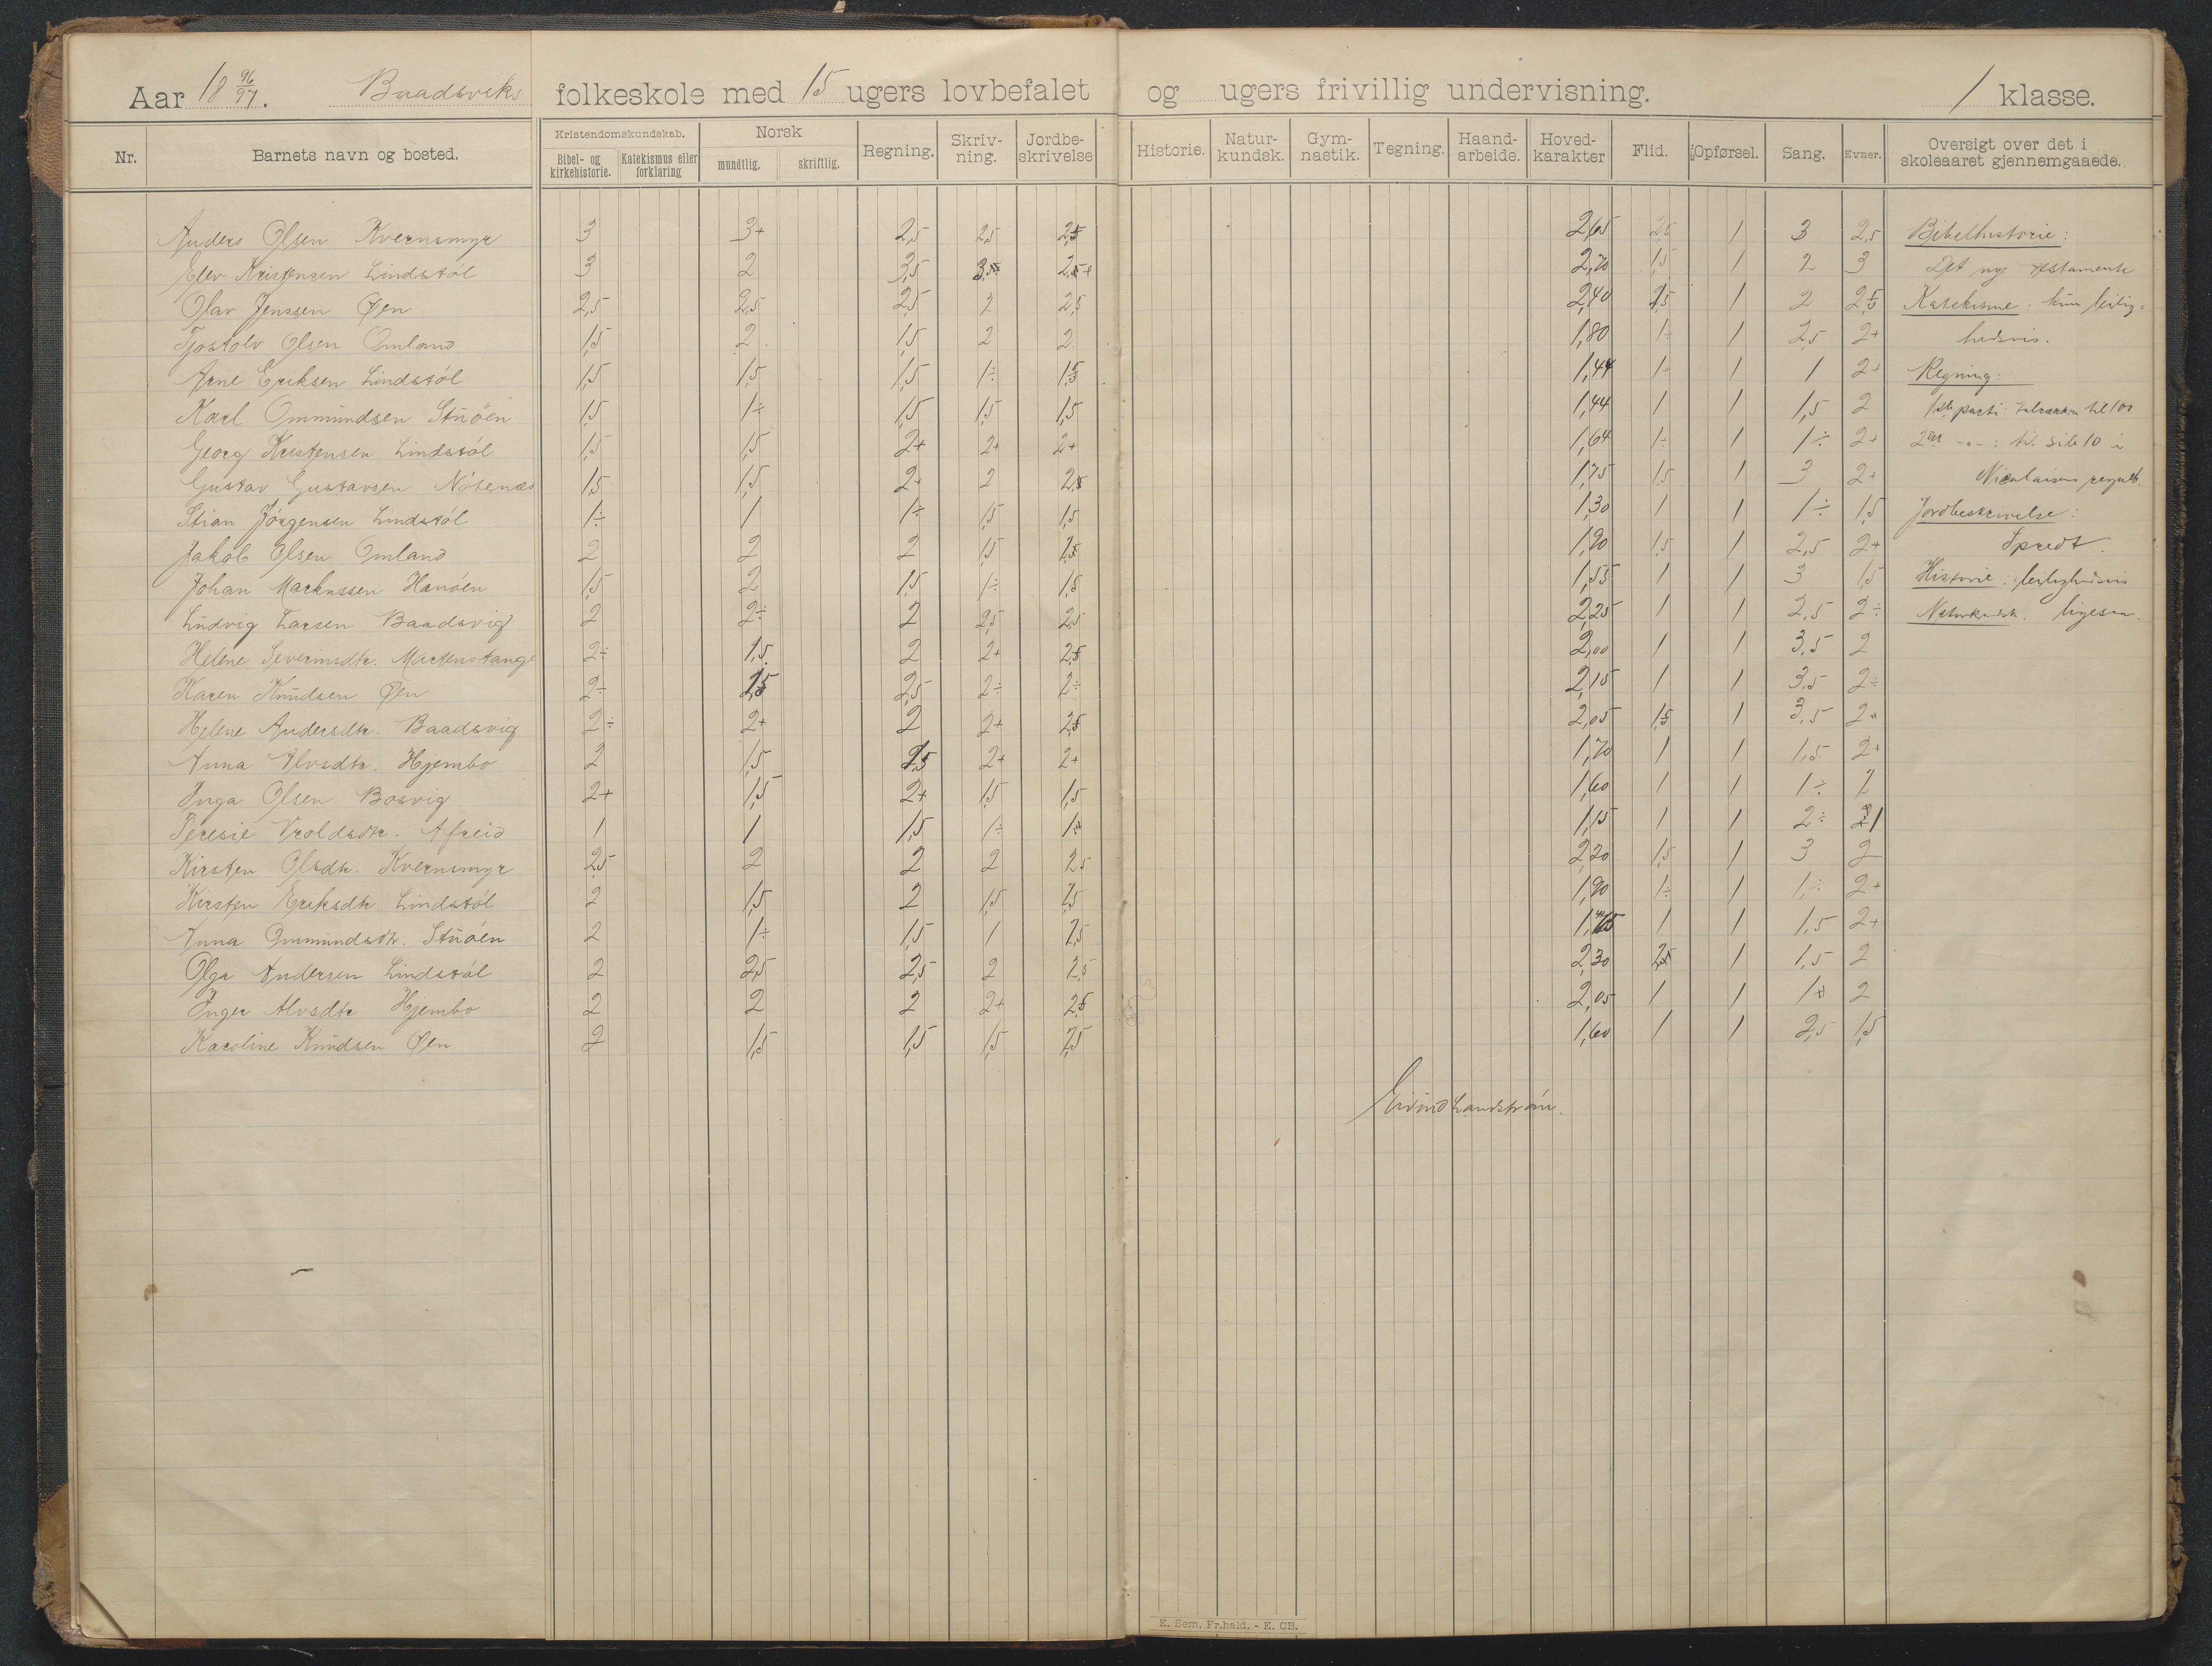 Aar 18 96/97. Baadsviks folkeskole med 15 ugers lovbefalet og ugers frivillig undervisning. 1 klasse.
Nr. Barnets navn og bosted. Kristendomskundskab. Bibel- og kirkehistorie. Katekismus eller forklaring Norsk mundtlig. skriftlig. Regning. Skriv-ning. Jordbe-skrivelse Historie. Natur-kundsk. Gym-nastik. Tegning. Haand-arbeide. Hoved-karakter Flid. Opførsel. Sang. Evner. Oversigt over det i skoleaaret gjennemgaaede.
Anders Olsen Kvernsmyr 3 3+ 2,5 2,5 2,5 2,65 2,5 1 3 2,5 Bibelhistorie:
Elev Kristensen Lindstøl 3 2 3,5 3,5 2,70 1,5 1 2 3 Det nye testamente
Olav Jenssen Øen 2,5 2,5 2,5 2 2,5 2,40 1 2 2,5 Katekisme: kun leilig-
Tjostolv Olsen Omland 1,5 2 1,5 2 2 1,80 1÷ 1 2,5 2+ hedsvis.
Arne Eriksen Lindstøl 1,5 1,5 1,5 1÷ 1,5 1,44 1÷ 1 1 2+ Regning.
Karl Ommundsen Stuöen 1,5 1÷ 1,5 1,5 1,5 1,44 1 1 1,5 2 1ste parti talrækken til 100
Georg Kristensen Lindstøl 1,5 1,5 2+ 2+ 2+ 1,64 1÷ 1 1÷ 2+ 2det -"-: til side 10 i
Gustav Gustavsen Nötenæs 1,5 1,5 2+ 2 2,5 1,75 1,5 1 3 2+ Nicolaisens regneb.
Stian Jörgensen Lindstøl 1÷ 1 1÷ 1,5 1,5 1,30 1 1 1÷ 1,5 Jordbeskrivelse:
Jakob Olsen Omland 2 2 2 1,5 2,5 1,90 1,5 1 2,5 2+ Spredt.
Johan Markussen Hanöen 1,5 2 1,5 1÷ 1,5 1,55 1 1 3 1,5 Historie: leilighedsvis
Ludvig Larsen Baadsvig 2 2÷ 2 2,5 2,5 2,25 1 1 2,5 2÷ Naturkundsk. ligesaa.
Helene Severinsdtr. Martenstange 2÷ 1,5 2 2+ 2,5 2,00 1 1 3,5 2
Karen Knudsen Øen 2÷ 2,5 2,5 2÷ 2÷ 2,15 1 1 3,5 2÷
Helene Andersdtr. Baadsvig 2÷ 2+ 2 2+ 2,5 2,05 1,5 1 3,5 2+
Anna Alvsdtr. Hjembo 2 1,5 1,5 2+ 2+ 1,70 1 1 1,5 2+
Inga Olsen Bosvig 2+ 1,5 2+ 1,5 1,5 1,60 1 1 1÷ 2
Teresie Vroldsdtr. Afreid 1 1 1,5 1÷ 1+ 1,15 1 1 2÷ 1
Kirsten Olsdtr. Kvernsmyr 2,5 2 2 2 2,5 2,20 1,5 1 3 2
Kirsten Eriksdtr. Lindstøl 2 1,5 2 1,5 2,5 1,90 1÷ 1 1÷ 2+
Anna Ommundsdtr. Stuöen 2 1÷ 1,5 1 2,5 1 1 1,5 2+
Olga Andersen Lindstøl 2 2,5 2,5 2 2,5 2,30 2,5 1 1,5 2
Inger Alvsdtr Hjembo 2 2 2 2+ 2,5 2,05 1 1 1+ 2
Karoline Knudsen Øen 2 1,5 1,5 1,5 2,5 1,60 1 1 2,5 1,5
Eivind
E. Sem, Fr.hald. - E. CB.